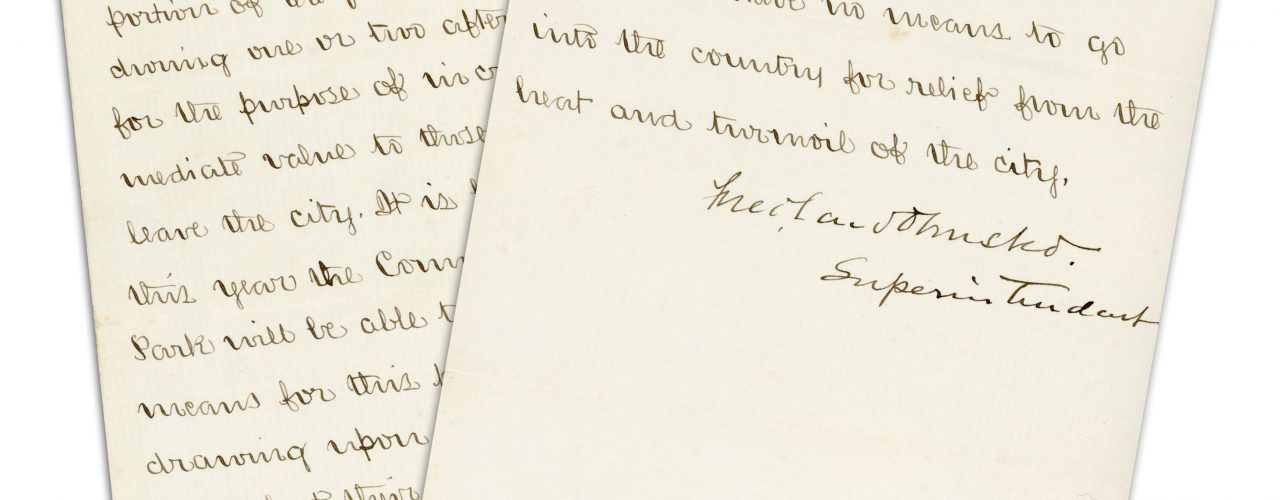 portion of the
driving one or two after
for the purpose of in
mediate value to those
leave the city. It is
this year the Com
Park will be able t
means for this
drawing upon
their
have no means to go
into the country for relief from the
heat and turmoil of the city.
Fred. Law Olmsted.
Superintendent